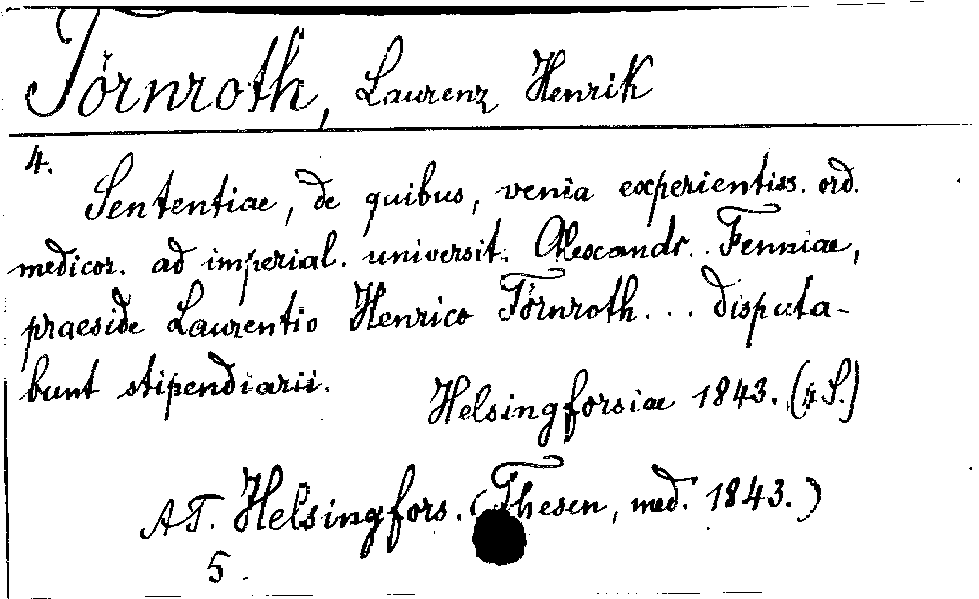 Törnroth, Laurenz Henrik
4.
Sententiae, de quibus, venia experientiss. ord.
medicor. ad imperial. universit. Alexandr. Fenniae,
praeside Laurentio Henrico Törnroth... disputa-
bunt stipendiarii.
Helsingforsiae 1843. (4 S.)
AT. Helsingfors. (Thesen, med. 1843.)
5.